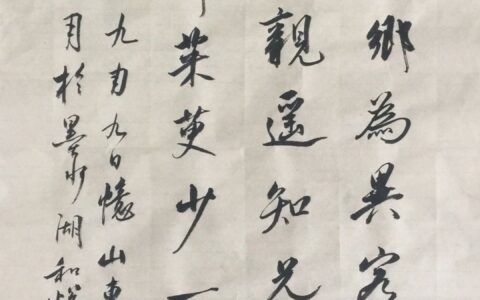 鄉為異客
親遥知兄
茱萸少一
九月九日憶山東
月於墨水湖和